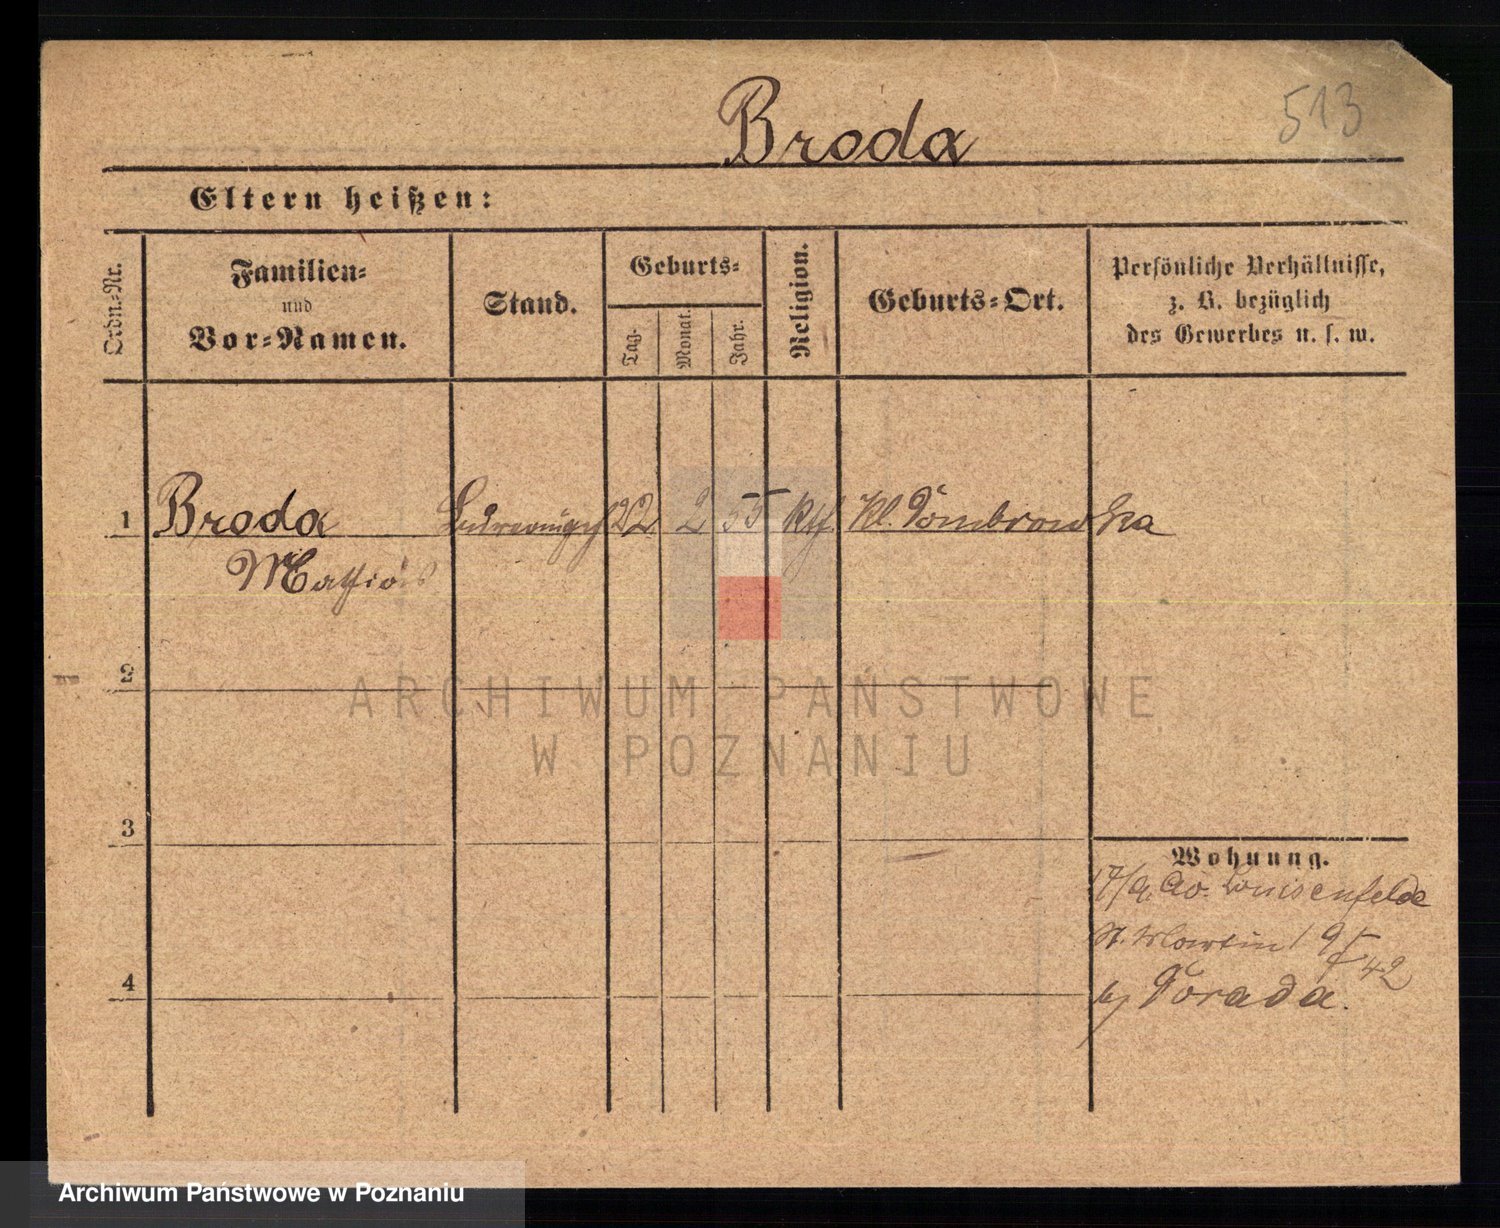 Broda
513
Eltern heißen:
Ordn.-Nr.
Familien-
und
Vor-Namen.
Stand.
Geburts-
Tag.
Monat.
Jahr.
Religion.
Geburts-Ort.
Persönliche Verhältnisse,
z. B. bezüglich
des Gewerbes u. s. w.
1 Broda 22 2 55 kth. Kl.
Mathias
2
3
4
Wohnung.
17/9. Louisenfelde
St. Martin
Torada.
ARCHIWUM PAŃSTWOWE
W POZNANIU
Archiwum Państwowe w Poznaniu